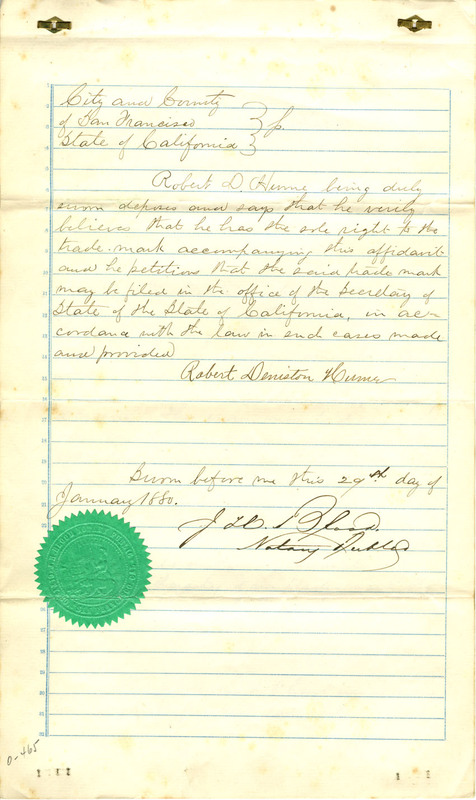 City and County
of San Francisco
State of California } ss.
Robert D. Hume being duly
sworn deposes and says that he verily
believes that he has the sole right to the
trade-mark accompanying this affidavit
and he petitions that the said trade mark
may be filed in the office of the Secretary of
State of the State of California, in ac-
cordance with the law in such cases made
and provided
Robert Deniston Hume
Sworn before me this 29th day of
January 1880.
J. H. Blood
Notary Public
0-465